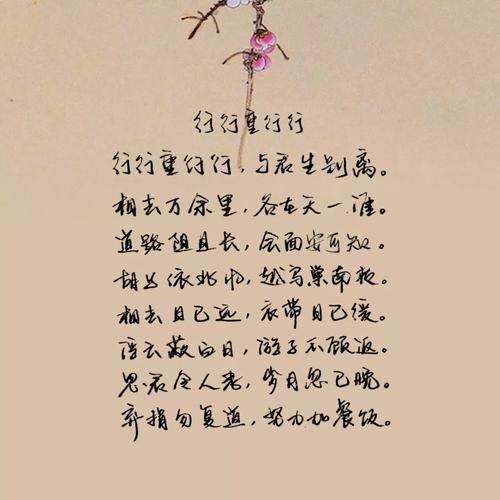 行行重行行
行行重行行，与君生别离。
相去万余里，各在天一涯。
道路阻且长，会面安可知。
胡马依北风，越鸟巢南枝。
相去日已远，衣带日已缓。
浮云蔽白日，游子不顾返。
思君令人老，岁月忽已晚。
弃捐勿复道，努力加餐饭。